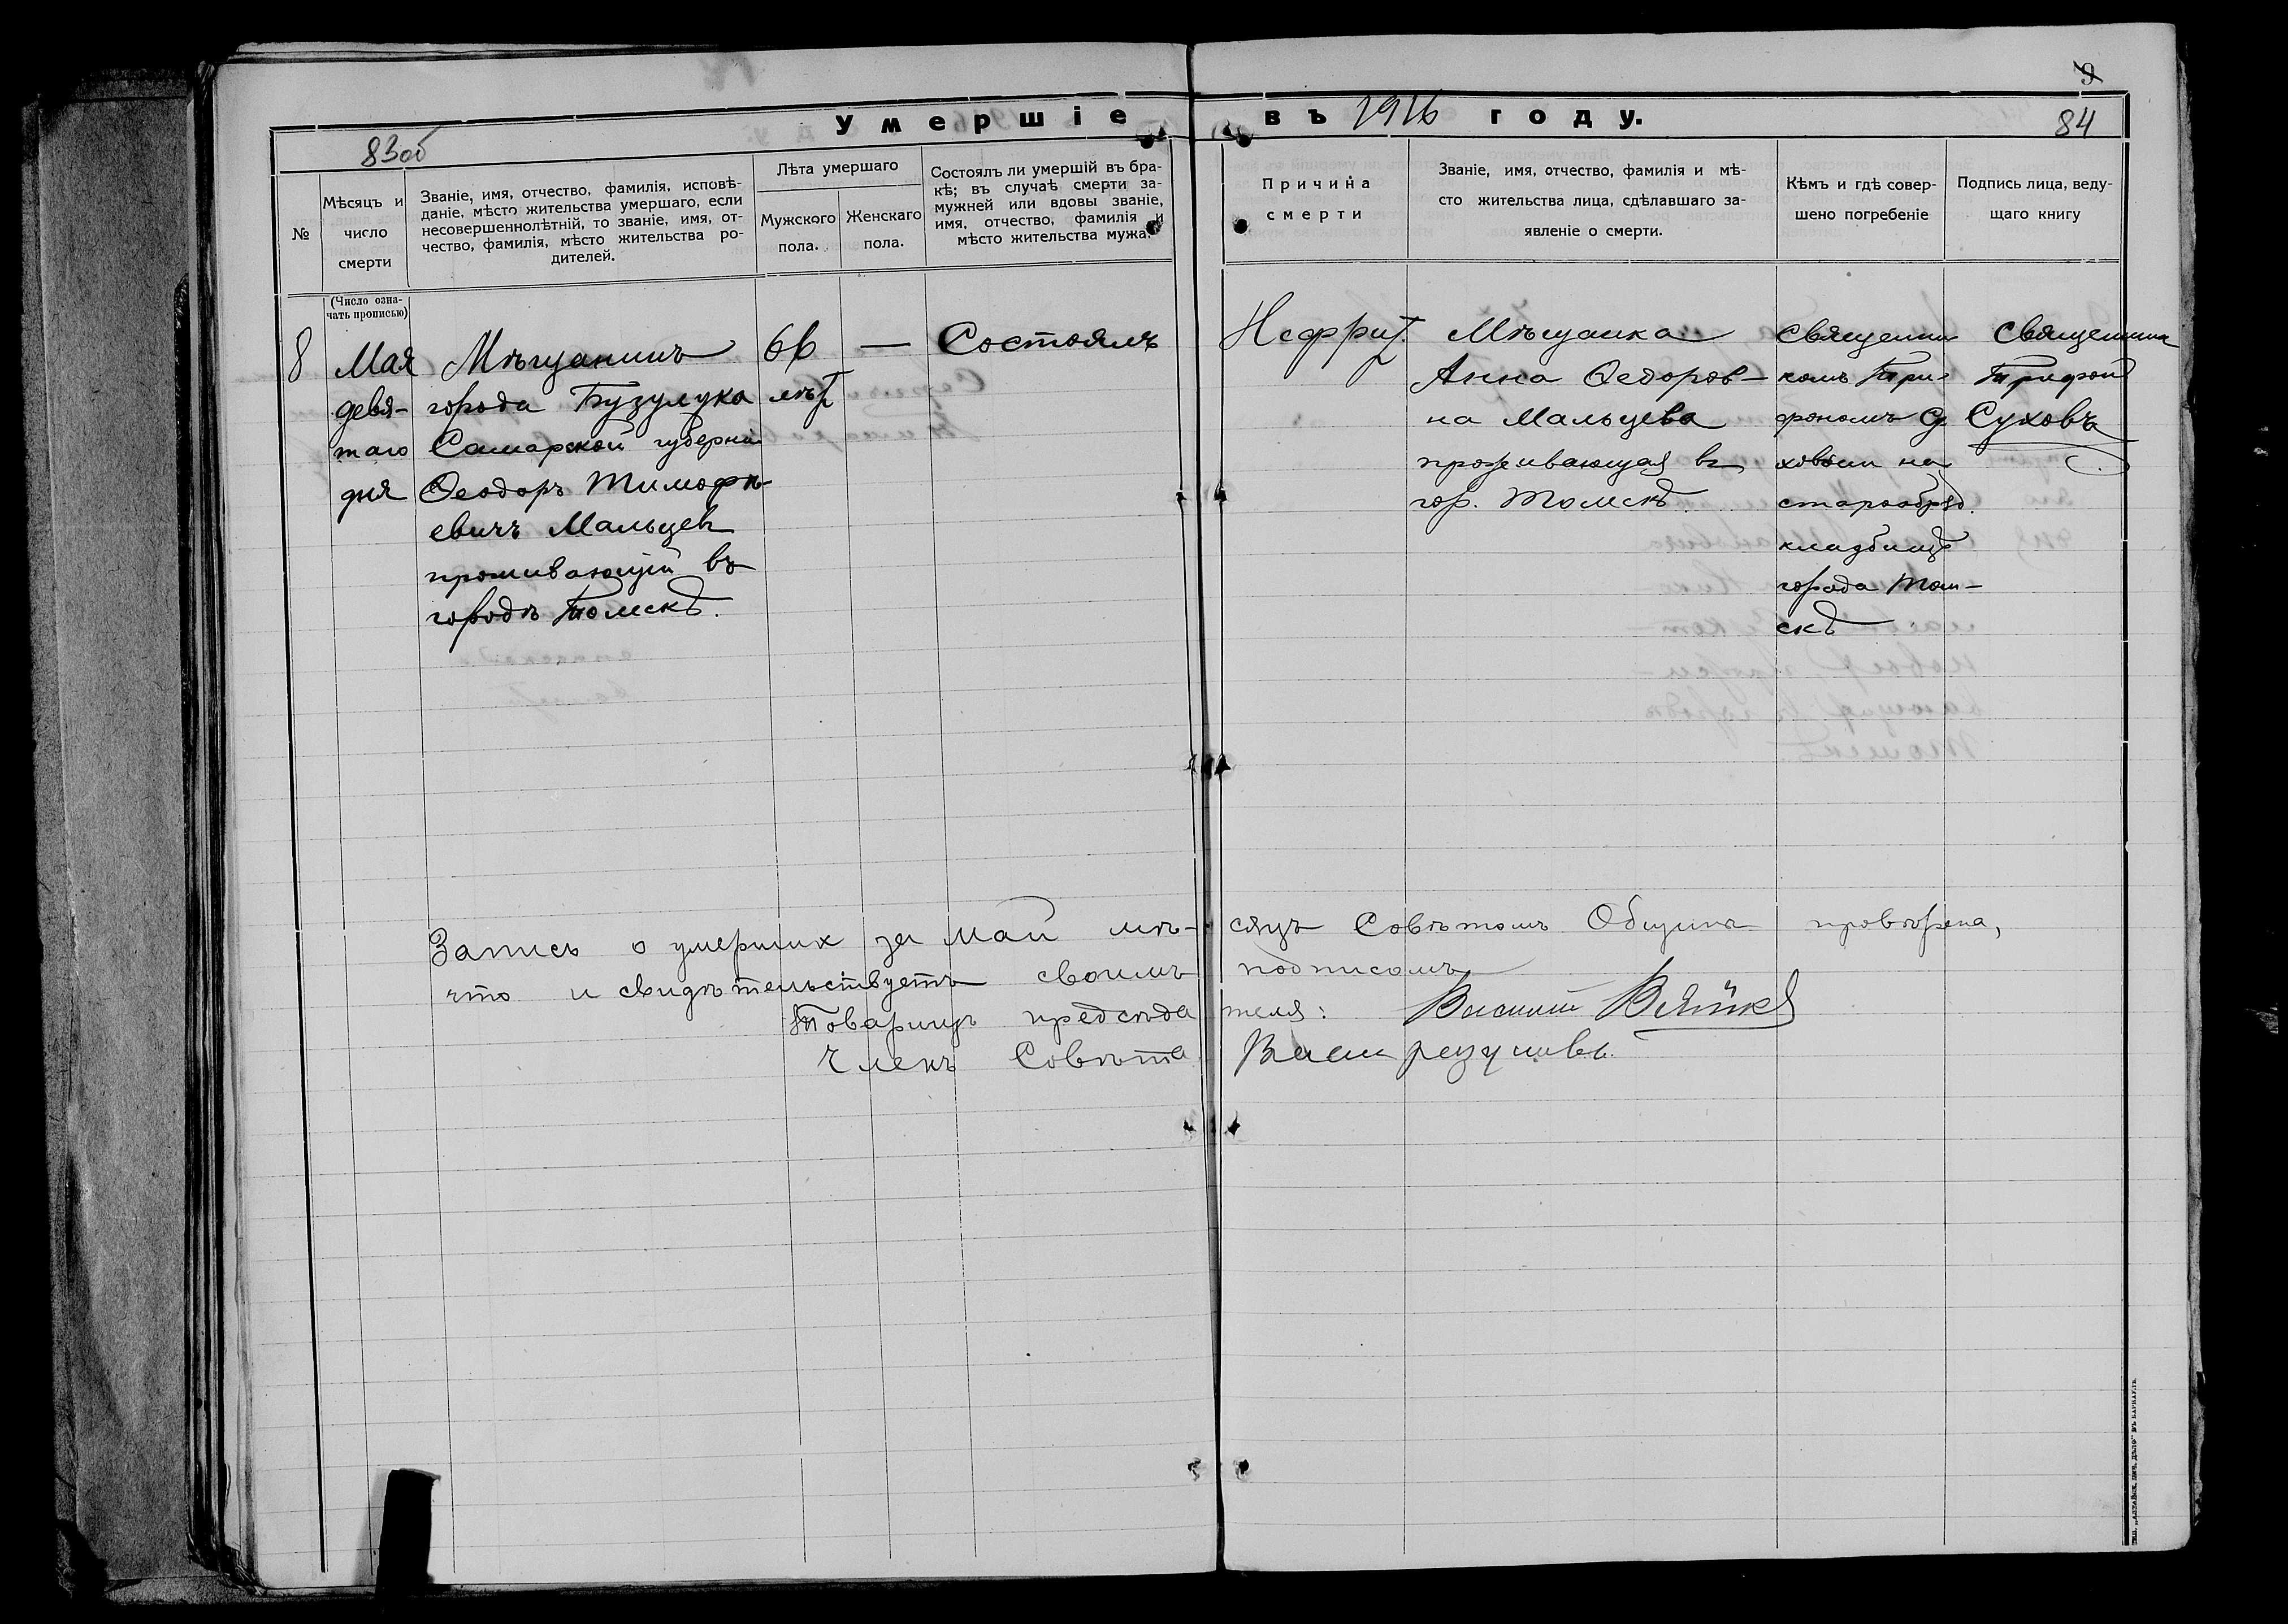 9
Умершіе въ 1916 году.
83об
84
№
Мѣсяцъ и
число
смерти
Званіе, имя, отчество, фамилія, исповѣ-
даніе, мѣсто жительства умершаго, если
несовершеннолѣтній, то званіе, имя, от-
чество, фамилія, мѣсто жительства ро-
дителей.
Лѣта умершаго
Мужского
пола.
Женскаго
пола.
Состоялъ ли умершій въ бра-
кѣ; въ случаѣ смерти за-
мужней или вдовы званіе,
имя, отчество, фамилія и
мѣсто жительства мужа.
Причина
смерти
Званіе, имя, отчество, фамилія и мѣ-
сто жительства лица, сдѣлавшаго за-
явленіе о смерти.
Кѣмъ и гдѣ совер-
шено погребеніе
Подпись лица, веду-
щаго книгу
(Число озна-
чать прописью)
8
Мая
девя-
таго
дня
Мѣщанинъ
города Бузулука
Самарской губерніи
Ѳеодоръ Тимофѣ-
евичъ Мальцевъ
проживающій въ
городѣ Томскѣ.
66
лѣтъ
—
Состоялъ
Нефритъ.
Мѣщанка
Анна Ѳедоров-
на Мальцева
проживающая въ
гор. Томскѣ.
Священни
комъ Три-
фономъ Су
ховым на
старообряд.
кладбищѣ
города Том-
скѣ
Священник
Трифон
Суховъ
Запись о умерших за Май мѣ-сяцъ Совѣтомъ Общины провѣрена,
что и свидѣтельствуетъ своимъ подписомъ
Товарищъ предсѣдателя: Василий
Членъ Совѣта